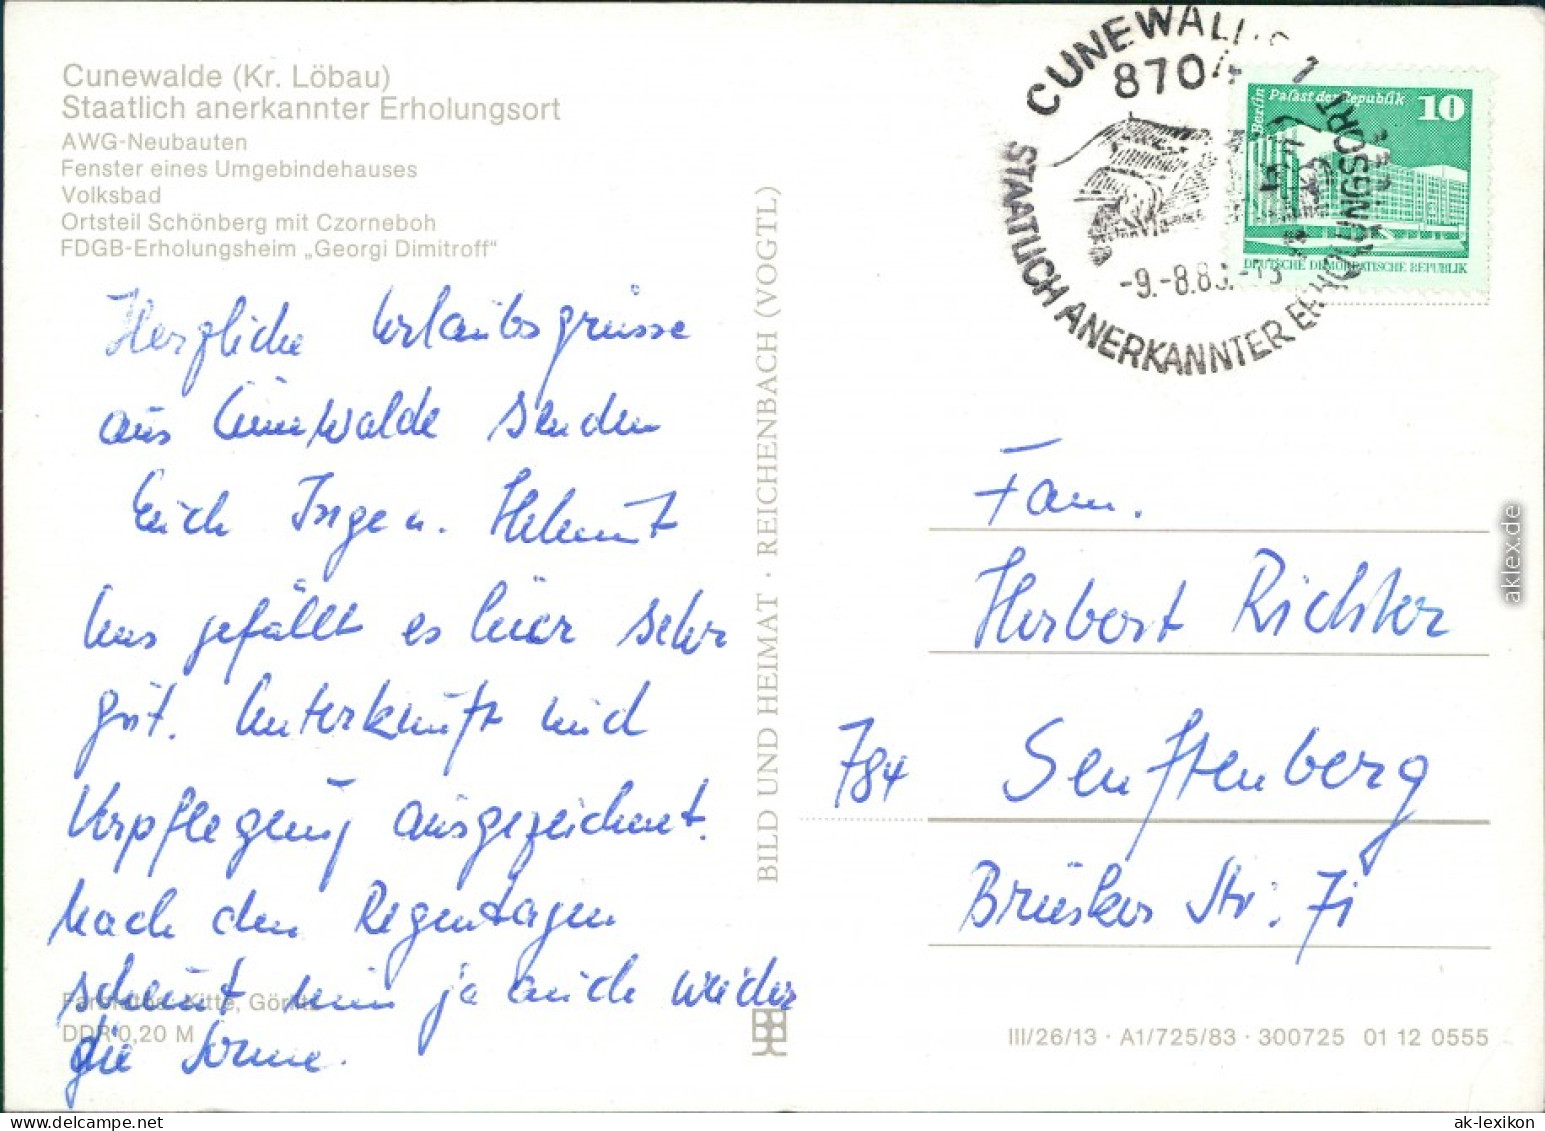 Cunewalde (Kr. Löbau)
Staatlich anerkannter Erholungsort
AWG-Neubauten
Fenster eines Umgebindehauses
Volksbad
Ortsteil Schönberg mit Czorneboh
FDGB-Erholungsheim „Georgi Dimitroff“
Herzliche Urlaubsgrüsse
aus Cunewalde senden
Euch Inge u. Helmut
Uns gefällt es hier sehr
gut. Unterkunft und
Verpflegung ausgezeichnet.
Nach den Regentagen
scheint nun ja auch wieder
die Sonne.
Farbfotos: Kitte, Görlitz
DDR 0,20 M
BILD UND HEIMAT · REICHENBACH (VOGTL)
8704
STAATLICH ANERKANNTER ERHOLUNGSORT
-9.-8.8
Berlin Palast der Republik 10
DEUTSCHE DEMOKRATISCHE REPUBLIK
Fam.
Herbert Richter
784 Senftenberg
Brieske Str. 71
III/26/13 · A1/725/83 · 300725 01 12 0555
aklex.de
ak-lexikon